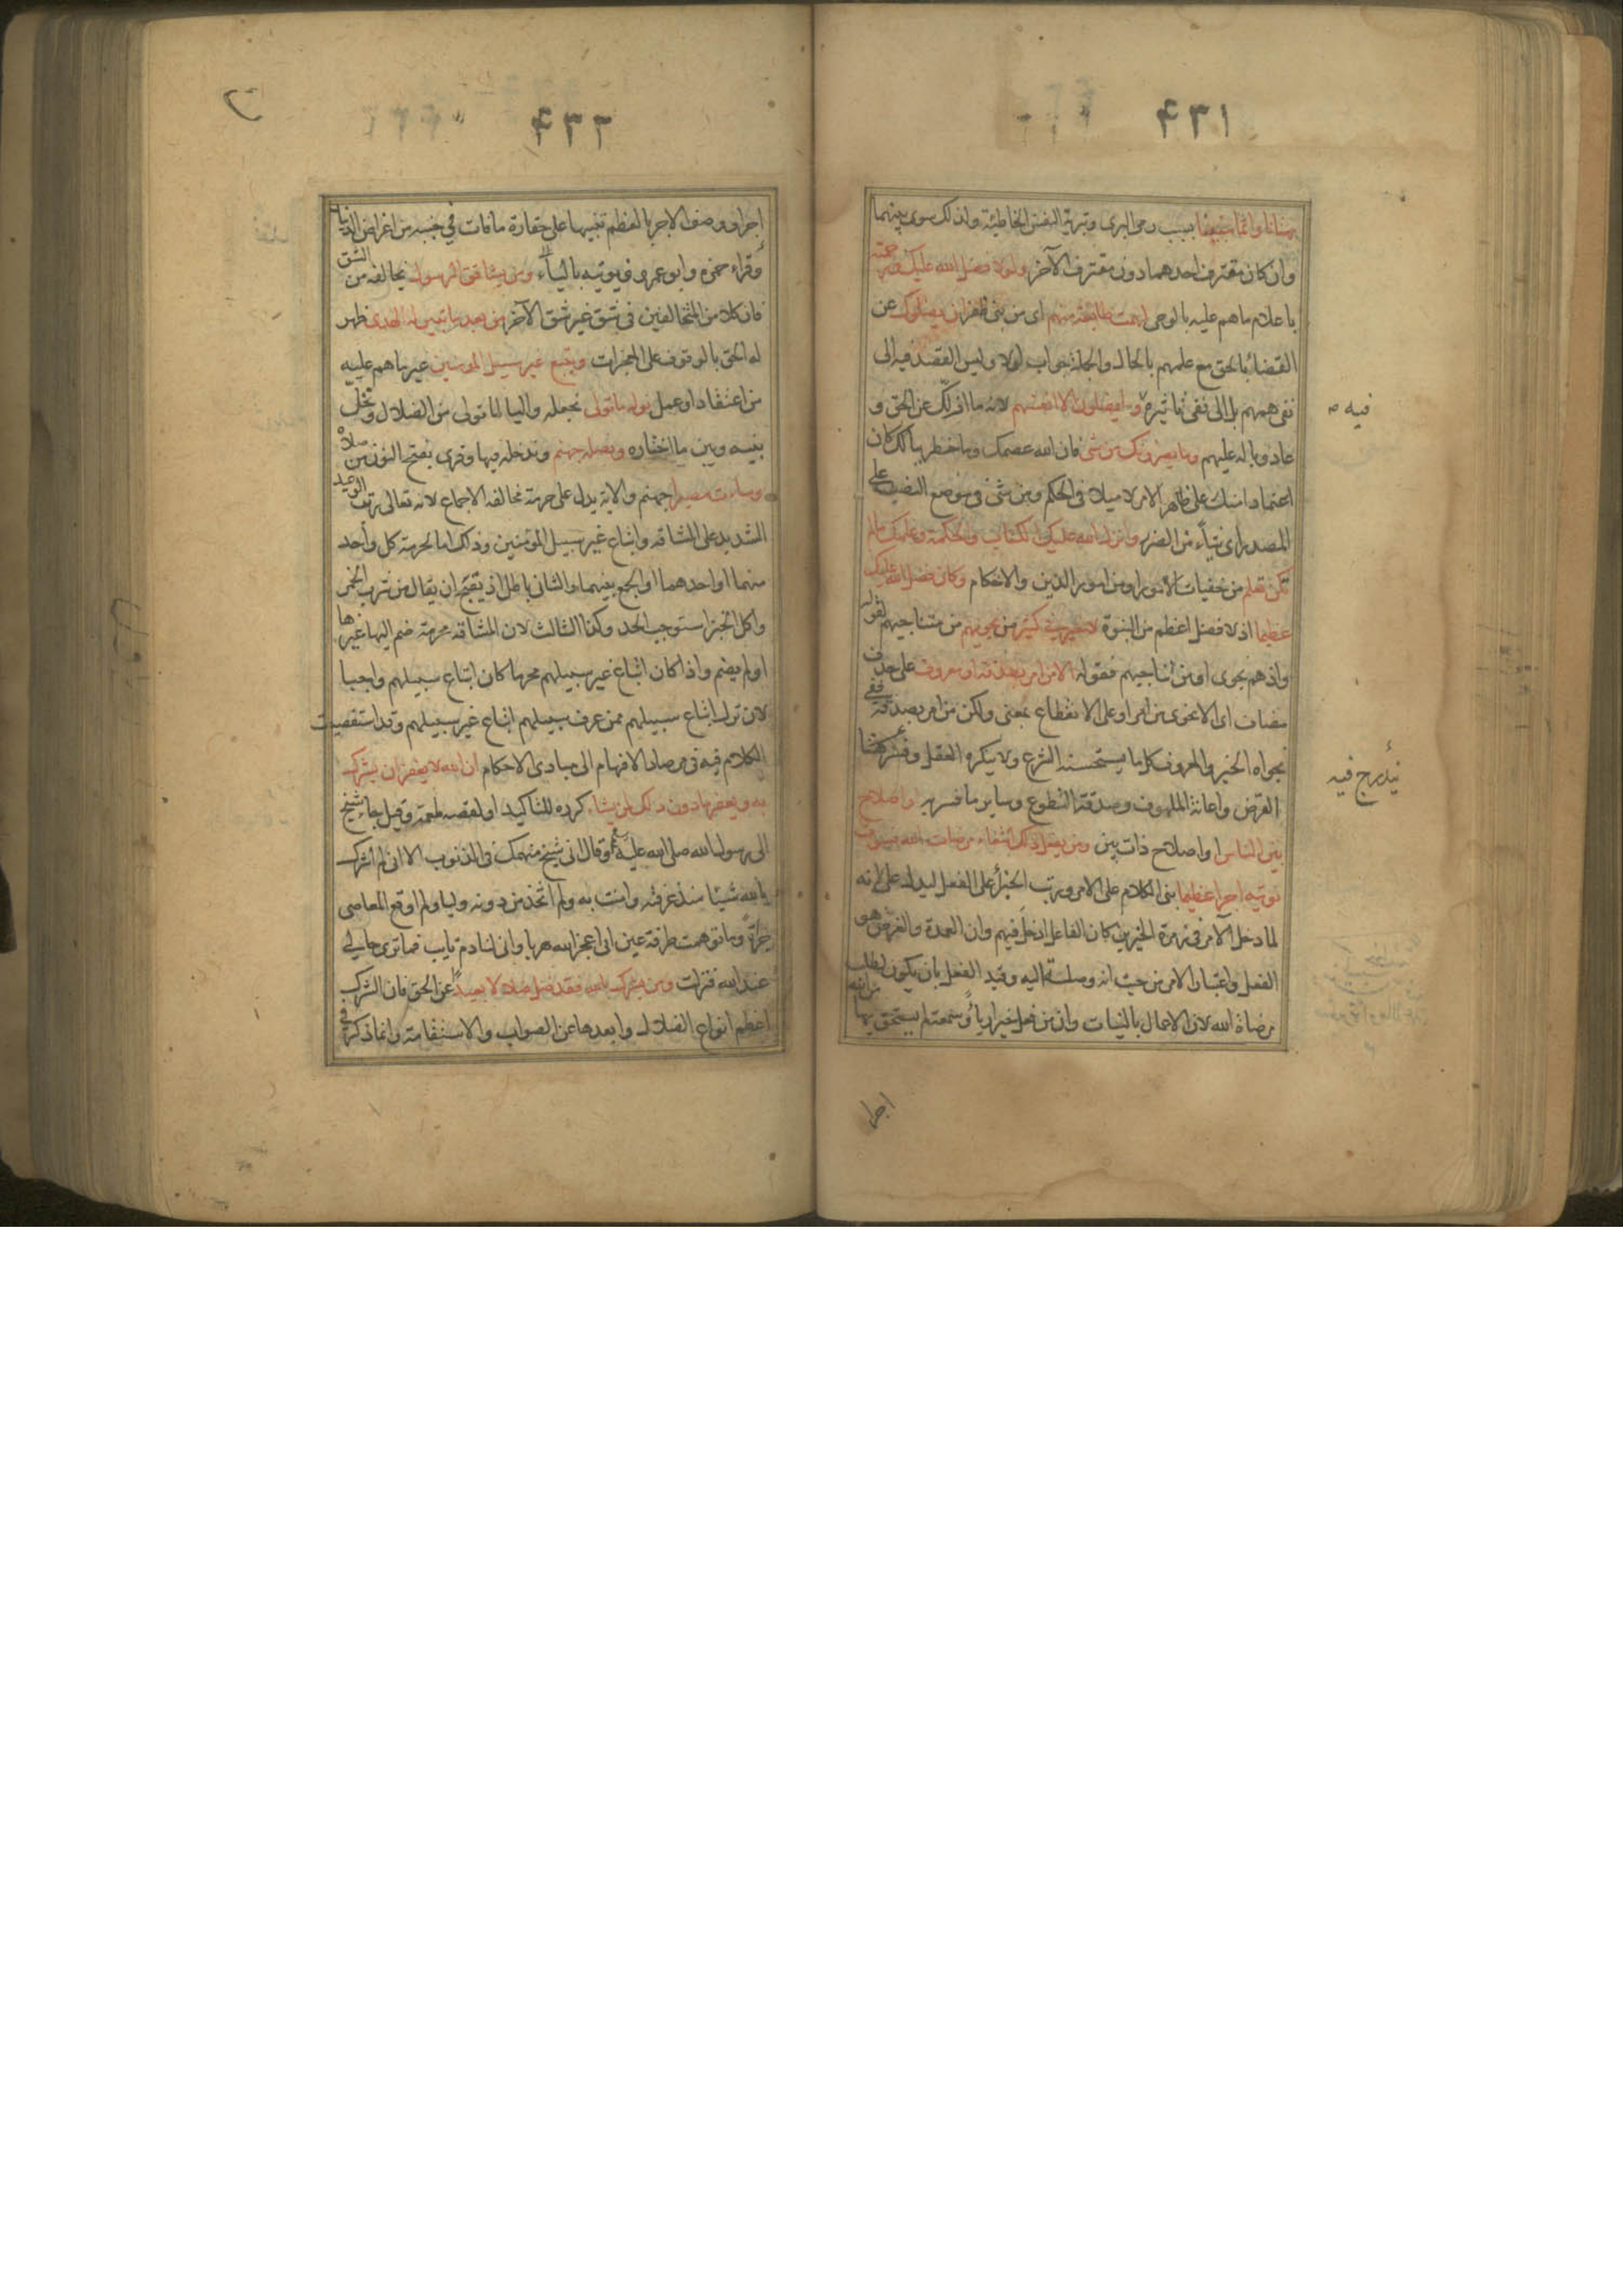 ۴۳۱
بهتانا واثما مبينا بسبب رمى البرى وتبرية النفس الخاطئة ولذلك سوى بينهما
وان كان مقترف احدهما دون مقترف الآخر ولولا فضل الله عليك ورحمته
باعلام ما هم عليه بالوحى لهمت طائفة منهم اى من بنى ظفر ان يضلوك عن
القضاء بالحق مع علمهم بالحال والجملة جواب لولا وليس القصد فيه الى
نفى همهم بل الى نفى تأثيره وما يضلون الا انفسهم لانه ما ازلك عن الحق و
عاد وباله عليهم وما يضرونك من شئ فان الله عصمك وما خطر ببالك كان
اعتمادا منك على ظاهر الامر لا ميلا فى الحكم ومن شئ فى موضع النصب على
المصدر اى شيأ من الضرر وانزل الله عليك الكتاب والحكمة وعلمك ما لم
تكن تعلم من خفيات الامور او من امور الدين والاحكام وكان فضل الله عليك
عظيما اذ لا فضل اعظم من النبوة لا خير فى كثير من نجويهم من متناجيهم لقوله
واذ هم نجوى او من تناجيهم فقوله الا من امر بصدقة او معروف على حذف
مضاف اى الا نجوى من امر او على الانقطاع بمعنى ولكن من امر بصدقة ففى
نجواه الخير والمعروف كل ما يستحسنه الشرع ولا ينكره العقل وفسر ههنا
القرض واغاثة الملهوف وصدقة التطوع وساير ما فسر به او اصلاح
بين الناس او اصلاح ذات بين ومن يفعل ذلك ابتغاء مرضات الله فسوف
نوتيه اجرا عظيما بنى الكلام على الامر ورتب الجزاء على الفعل ليدل على انه
لما دخل الآمر فى زمرة الخيرين كان الفاعل ادخل فيهم وان العمدة والغرض هو
الفعل واعتبار الامر من حيث انه وصلة اليه وقيد الفعل بان يكون لطلب
مرضاة الله لان الاعمال بالنيات وان من فعل خيرا رياء وسمعة لم يستحق بها من الله
فيه
يندرج فيه
اجرا
۴۳۲
اجرا ووصف الاجر بالعظم تنبيها على حقارة ما فات فى جنبه من اغراض الدنيا
وقراء حمزة وابو عمرو فيوتيه بالياء ومن يشاقق الرسول يخالفه من الشق
فان كلا من المتخالفين فى شق غير شق الآخر من بعد ما تبين له الهدى ظهر
له الحق بالوقوف على المعجزات ويتبع غير سبيل المومنين غير ما هم عليه
من اعتقاد او عمل نوله ما تولى نجعله واليا لما تولى من الضلال ونخلى
بينه وبين ما اختاره ونصله جهنم وندخله فيها وقرى بفتح النون من صلاه
وساءت مصيرا جهنم والاية يدل على حرمة مخالفة الاجماع لانه تعالى رتب الوعيد
الشديد على المشاقة واتباع غير سبيل المؤمنين وذلك اما لحرمة كل واحد
منهما او احدهما او الجمع بينهما والثانى باطل اذ يقبح ان يقال من شرب الخمر
واكل الخبز استوجب الحد وكذا الثالث لان المشاقة محرمة ضم اليها غيرها
اولم يضم واذا كان اتباع غير سبيلهم محرما كان اتباع سبيلهم واجبا
لان ترك اتباع سبيلهم ممن عرف سبيلهم اتباع غير سبيلهم وقد استقصيت
الكلام فيه فى مرصاد الافهام الى مبادى الاحكام ان الله لا يغفر ان يشرك
به ويغفر ما دون ذلك لمن يشاء كرره للتاكيد او لقصه طعمة وقيل جاء شيخ
الى رسول الله صلى الله عليه وقال انى شيخ منهمك فى الذنوب الا انى لم اشرك
بالله شيئا منذ عرفته وامنت به ولم اتخذ من دونه وليا ولم اوقع المعاصى
جرأة وما توهمت طرفة عين انى اعجز الله هربا وانى لنادم تايب فما ترى حالى
عند الله فنزلت ومن يشرك بالله فقد ضل ضلالا بعيدا عن الحق فان الشرك
اعظم انواع الضلال وابعدها عن الصواب والاستقامة وانما ذكر فى